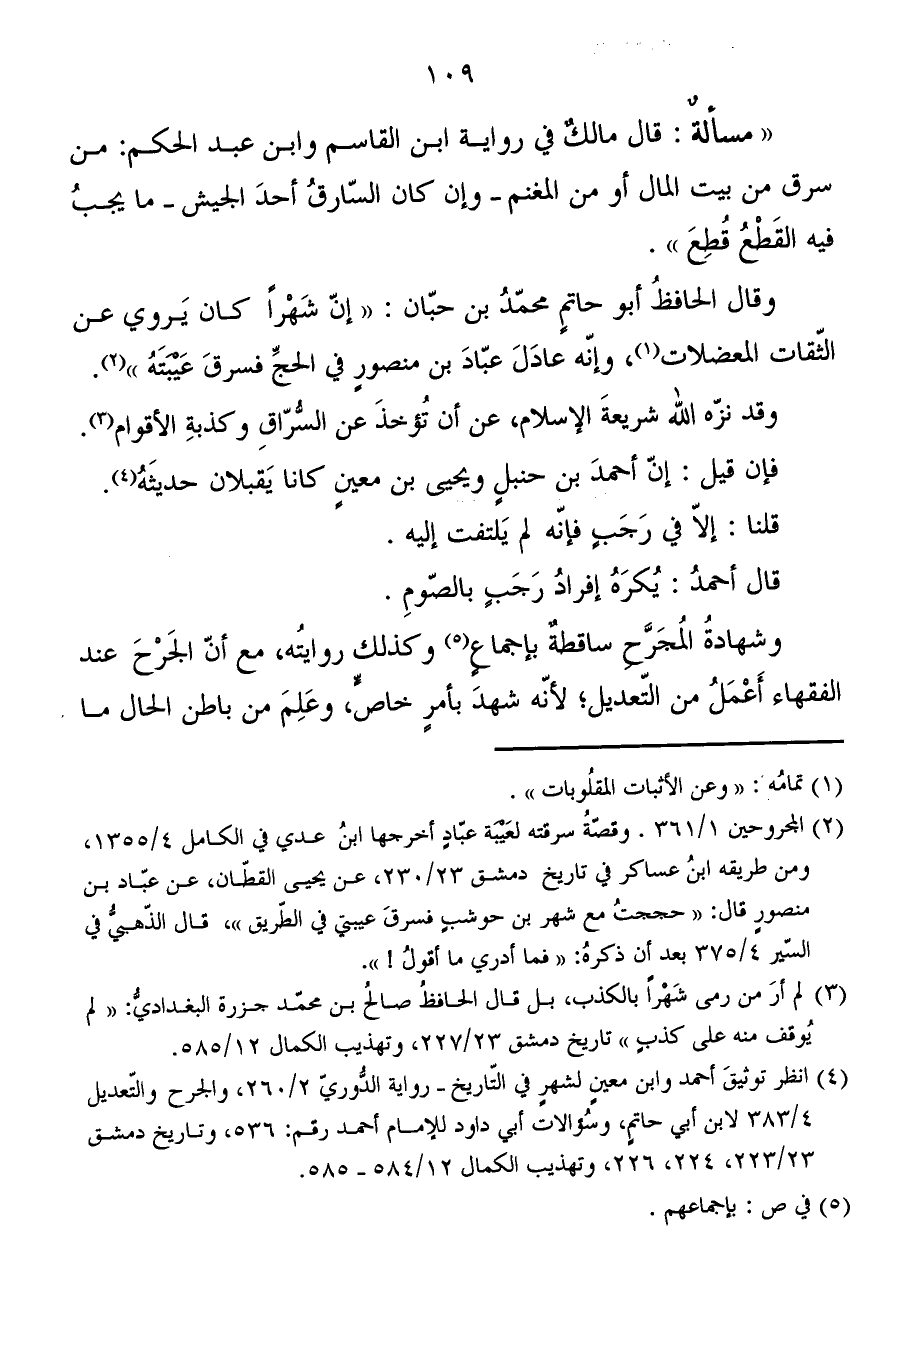 ١٠٩
« مسألةٌ : قال مالكٌ في رواية ابن القاسم وابن عبد الحكم: من
سرق من بيت المال أو من المغنم ـ وإن كان السّارقُ أحدَ الجيش ـ ما يجبُ
فيه القَطْعُ قُطِعَ » .
وقال الحافظُ أبو حاتمٍ محمّدُ بن حبّان : « إنّ شَهْراً كان يَروي عن
الثّقات المعضلات(١)، وإنّه عادَلَ عبّادَ بن منصورٍ في الحجِّ فسرقَ عَيْبَتَهُ »(٢).
وقد نزّه اللهُ شريعةَ الإسلام، عن أن تُؤخذَ عن السُّرّاقِ وكذبةِ الأقوام(٣).
فإن قيل : إنّ أحمدَ بن حنبلٍ ويحيى بن معينٍ كانا يَقبلان حديثَهُ(٤).
قلنا : إلاّ في رَجَبٍ فإنّه لم يَلتفت إليه .
قال أحمدُ : يُكرَهُ إفرادُ رَجَبٍ بالصّومِ .
وشهادةُ المُجَرَّحِ ساقطةٌ بإجماعٍ(٥) وكذلك روايتُه، مع أنّ الجَرْحَ عند
الفقهاء أَعْمَلُ من التّعديل؛ لأنّه شهدَ بأمرٍ خاصٍّ، وعَلِمَ من باطن الحال ما
(١) تمامُه : « وعن الأثبات المقلُوبات » .
(٢) المجروحين ٣٦١/١ . وقصّةُ سرقته لعَيْبَة عبّادٍ أخرجها ابنُ عدي في الكامل ١٣٥٥/٤،
ومن طريقه ابنُ عساكر في تاريخ دمشق ٢٣٠/٢٣، عن يحيى القطّان، عن عبّاد بن
منصورٍ قال: « حججتُ مع شهر بن حوشبٍ فسرقَ عيبتي في الطّريق »، قال الذّهبيُّ في
السِّير ٣٧٥/٤ بعد أن ذكرهُ: « فما أدري ما أقولُ ! ».
(٣) لم أرَ من رمى شَهْراً بالكذب، بل قال الحافظُ صالحُ بن محمّد جزرة البغداديُّ: « لم
يُوقف منه على كذبٍ » تاريخ دمشق ٢٢٧/٢٣، وتهذيب الكمال ٥٨٥/١٢.
(٤) انظر توثيقَ أحمد وابن معينٍ لشهرٍ في التّاريخ ـ رواية الدُّوريّ ٢٦٠/٢، والجرح والتّعديل
٣٨٣/٤ لابن أبي حاتمٍ، وسُؤالات أبي داود للإمام أحمد رقم: ٥٣٦، وتاريخ دمشق
٢٢٣/٢٣، ٢٢٤، ٢٢٦، وتهذيب الكمال ٥٨٤/١٢ ـ ٥٨٥.
(٥) في ص : بإجماعهم .